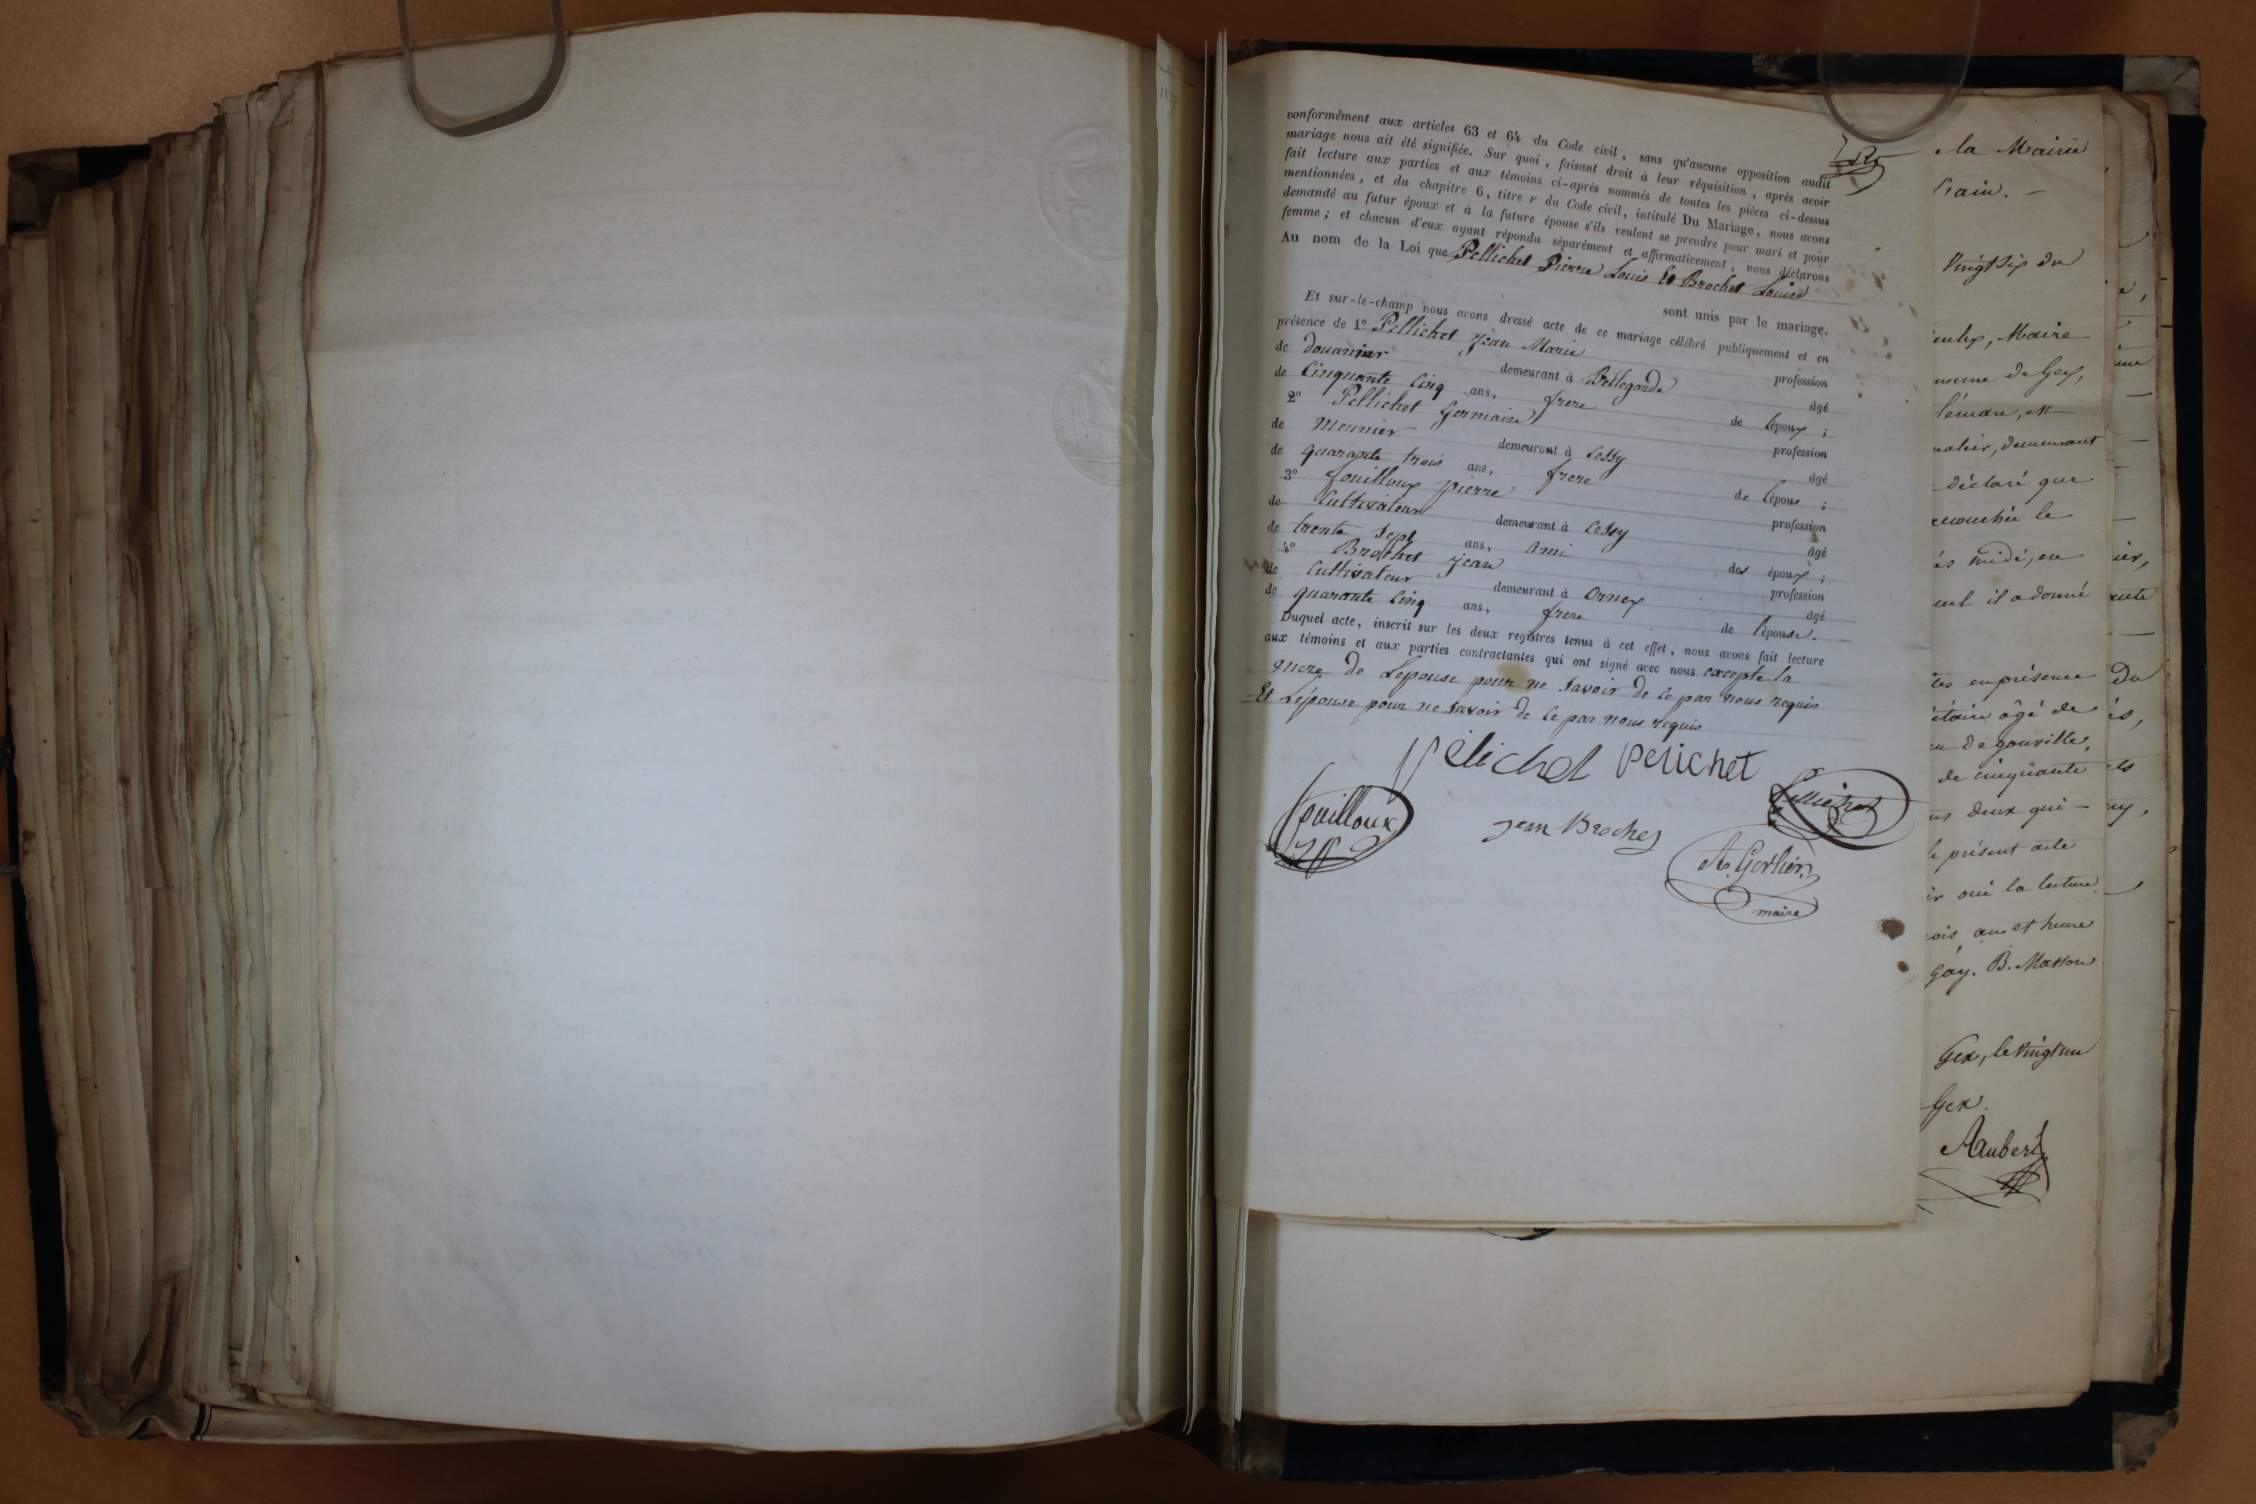 conformément aux articles 63 et 64 du Code civil, sans qu'aucune opposition audit
mariage nous ait été signifiée. Sur quoi, faisant droit à leur réquisition, après avoir
fait lecture aux parties et aux témoins ci-après nommés de toutes les pièces ci-dessus
mentionnées, et du chapitre 6, titre v du Code civil, intitulé Du Mariage, nous avons
demandé au futur époux et à la future épouse s'ils veulent se prendre pour mari et pour
femme; et chacun d'eux ayant répondu séparément et affirmativement, nous déclarons
Au nom de la Loi que Pellichet Pierre Louis Et Brochet Louise
sont unis par le mariage.
Et sur-le-champ nous avons dressé acte de ce mariage célébré publiquement et en
présence de 1º Pellichet Jean Marie profession
de douanier demeurant à Bellegarde âgé
de Cinquante Cinq ans, frere de lépoux;
2º Pellichet Germain profession
de Meunier demeurant à Cessy âgé
de quarante trois ans, frere de lépoux;
3º fouilloux pierre profession
de Cultivateur demeurant à Cessy âgé
de trente Sept ans, Ami des époux;
4º Brochet Jean profession
de Cultivateur demeurant à Ornex âgé
de quarante Cinq ans, frere de lépouse.
Duquel acte, inscrit sur les deux registres tenus à cet effet, nous avons fait lecture
aux témoins et aux parties contractantes qui ont signé avec nous excepte la
mere de Lepouse pour ne Savoir de ce par nous requis
Et Lépouse pour ne savoir de ce par nous requis
Pélichet Pelichet
fouilloux Jean Brochet Pellichet
A. Gerlier
maire
la Mairie
l'ain.
vingt six du
Maire
de Gex,
léman, est
demeurant
déclaré que
accouchée le
midi, en
il a donné
en présence
âgé de
de gouville,
de cinquante
deux qui
le présent acte
oui la lecture
an et heure
Gay. B. Masson
Gex, le vingt un
Gex.
Aaubert
du